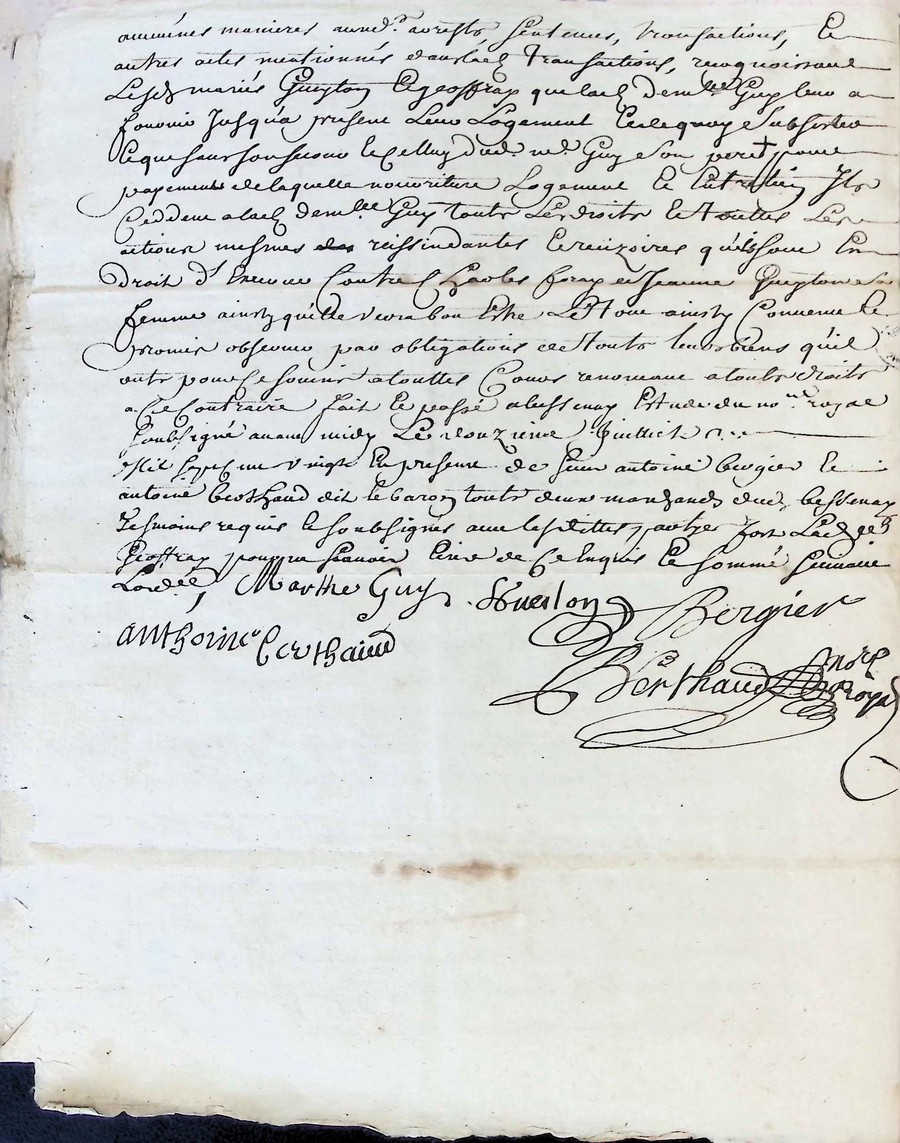 aucunes manieres ausd. arrests sentences, transactions, Et
autres actes mentionnés dans lad. transactions, recognoissant
Lesd. mariés Guyton Et geoffray que lad. demlle Guy leur a
fourni Jusqu'à present Leur Logement Et dequoy subsister
Et que sans son secours Et celluy dud. Guy son pere pour
payement de laquelle nourriture Logement Et Entretien Ils
Ceddent a lad. demlle Guy touts Les droits Et touttes Les
actions mesmes ressindantes Et recizoires qu'ils sont En
droit d'Exercer Contre Charles foray et Jeanne Guyton sa
femme ainsy qu'elle verra bon Estre Le tout ainsy Convenu Et
promis observer par obligations de touts leurs biens qu'il
onts pour ce soumis a touttes Cours renonceant a touts droits
a ce Contraire fait Et passé a bessenay Estude du nore royal
soubsigné avant midy Le douzieme Juillet
mil sept cent vingt En presence de sieur antoine bergier Et
antoine berthaud dit le baron touts deux marchands dud. bessenay
tesmoins requis Et soubsignés avec les parties fors Lad.
geoffray pour ne scavoir Ecrire de ce Enquis Et sommé suivant
Lordce, Marthe Guy. Guiton Bergier
anthoine berthaud
Berthaud nore royal